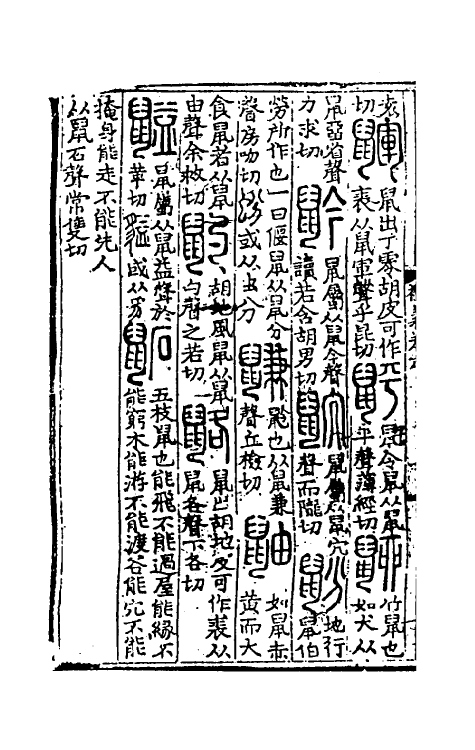 裘
切
鼲
鼠出丁零胡皮可作
裘从鼠軍聲乎昆切
鼠令鼠从鼠
平聲薄經切
竹鼠也
如犬从
鼠亞省聲
力求切
鼠屬从鼠今聲
讀若含胡男切
鼠屬从鼠穴
聲而隴切
鼢
地行
鼠伯
勞所作也一曰偃鼠从鼠分
聲房吻切
蚡
或从虫分
鼸
鼸也从鼠兼
聲丘檢切
鼬
如鼠赤
黃而大
食鼠者从鼠
由聲余救切
胡地風鼠从鼠
勺聲之若切
鼠出胡地皮可作裘从
鼠各聲下各切
鼠屬从鼠益聲於
革切
貖
或从豸
鼫
五枝鼠也能飛不能過屋能緣不
能窮木能游不能渡谷能穴不能
掩身能走不能先人
从鼠石聲常隻切